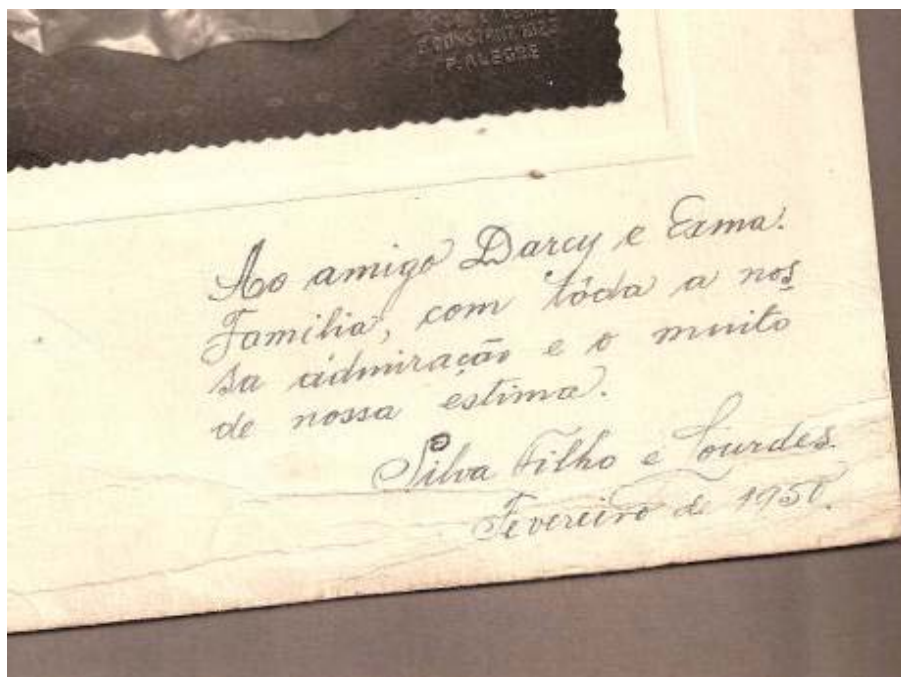 P. ALEGRE
Ao amigo Darcy e Exma.
Familia, com tôda a nos
sa admiração e o muito
de nossa estima.
Silva Filho e Lourdes
Fevereiro de 1950.